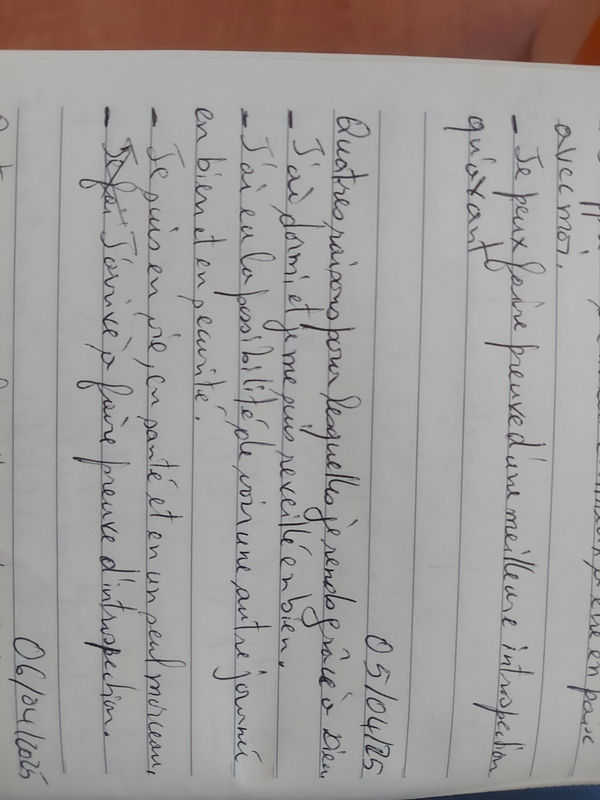 avec moi.
- Je peux faire preuve d'une meilleure introspection
qu'avant
05/04/25
Quatres raisons pour lesquelles je rends grâce à Dieu
- J'ai dormi et je me suis réveillé en bien.
- J'ai eu la possibilité de voir une autre journée
en bien et en sécurité.
- Je suis en vie, en santé et en un seul morceau.
- J'arrive à faire preuve d'introspection.
06/04/2025